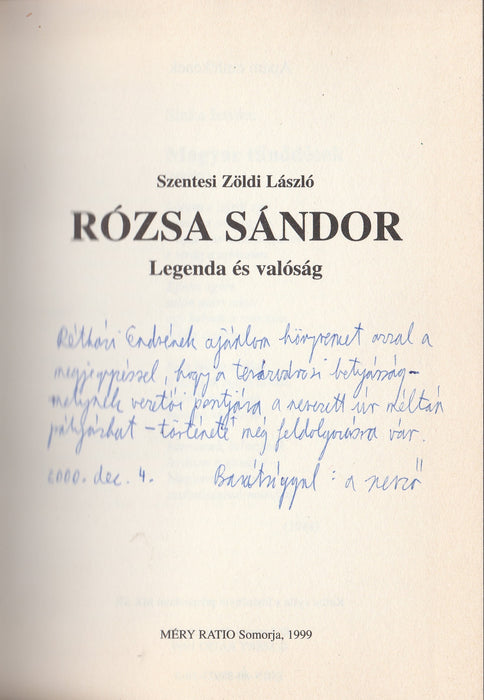 Szentesi Zöldi László
RÓZSA SÁNDOR
Legenda és valóság
Endrének ajánlom könyvemet azzal a
megjegyzéssel, hogy a terézvárosi betyárság -
melynek vezetői posztjára a nevezett úr méltán
pályázhat - története még feldolgozásra vár.
2000. dec. 4. Barátsággal: a szerző
MÉRY RATIO Somorja, 1999